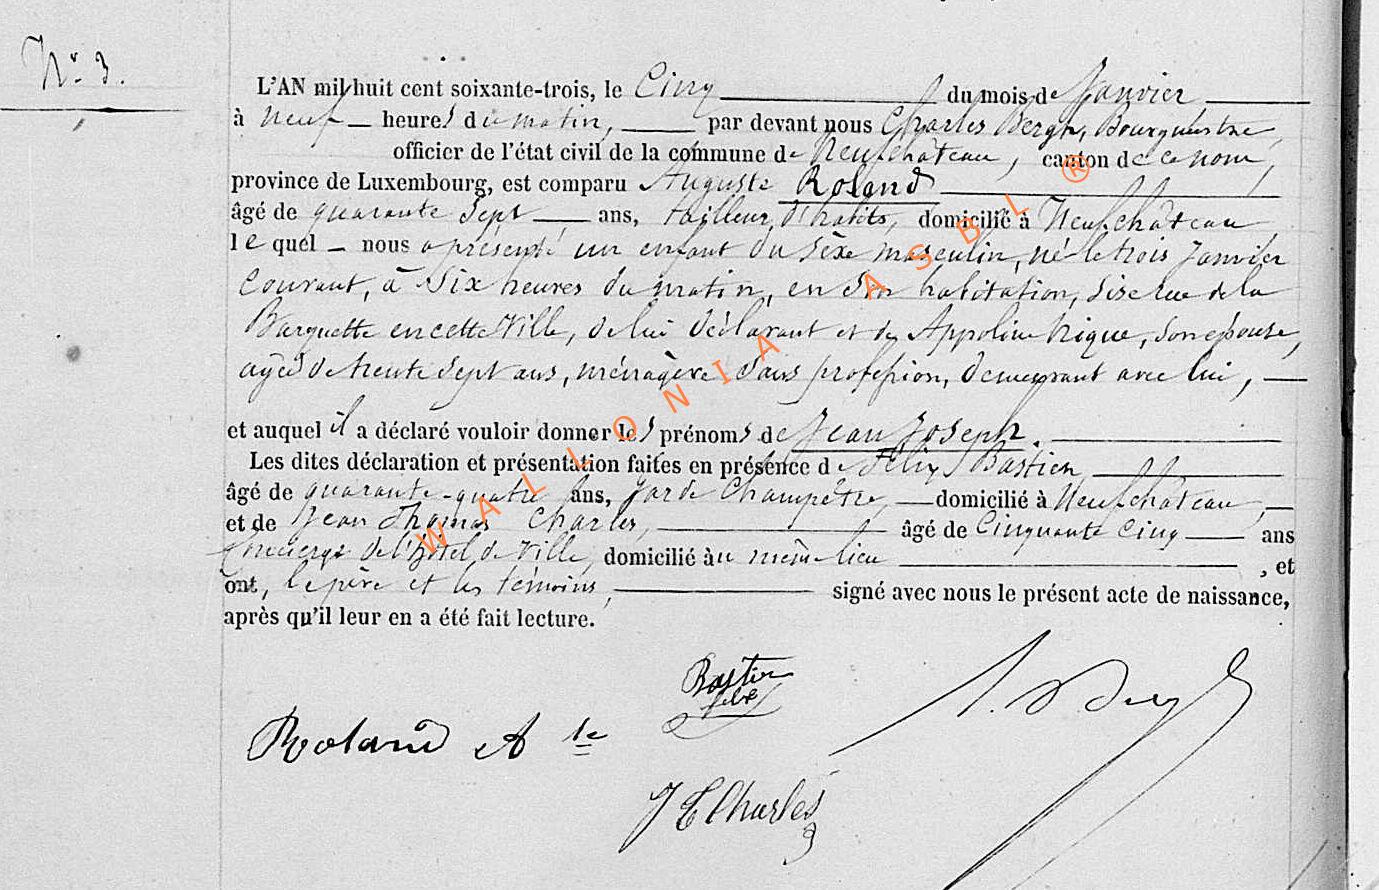 N° 3.
L'AN mil huit cent soixante-trois, le Cinq du mois de Janvier
à neuf heures du matin, par devant nous Charles Bergh, Bourgmestre,
officier de l'état civil de la commune de Neufchâteau, canton de ce nom,
province de Luxembourg, est comparu Auguste Roland
âgé de quarante sept ans, tailleur d'habits, domicilié à Neufchâteau,
lequel nous a présenté un enfant du sèxe masculin, né le trois Janvier
courant, à six heures du matin, en son habitation, sise rue de la
Barquette en cette Ville, de lui déclarant et de Appoline Nique, son épouse,
agée de trente sept ans, ménagère sans profession, demeurant avec lui,
et auquel il a déclaré vouloir donner les prénoms de Jean Joseph.
Les dites déclaration et présentation faites en présence de Félix Bastien,
âgé de quarante-quatre ans, garde champêtre, domicilié à Neufchâteau,
et de Jean Thomas Charles, âgé de Cinquante cinq ans
Concierge de l'hôtel de Ville, domicilié au même lieu , et
ont, le père et les témoins, signé avec nous le présent acte de naissance,
après qu'il leur en a été fait lecture.
Bastien
Roland A te
J T Charles
WALLONIA ASBL ®